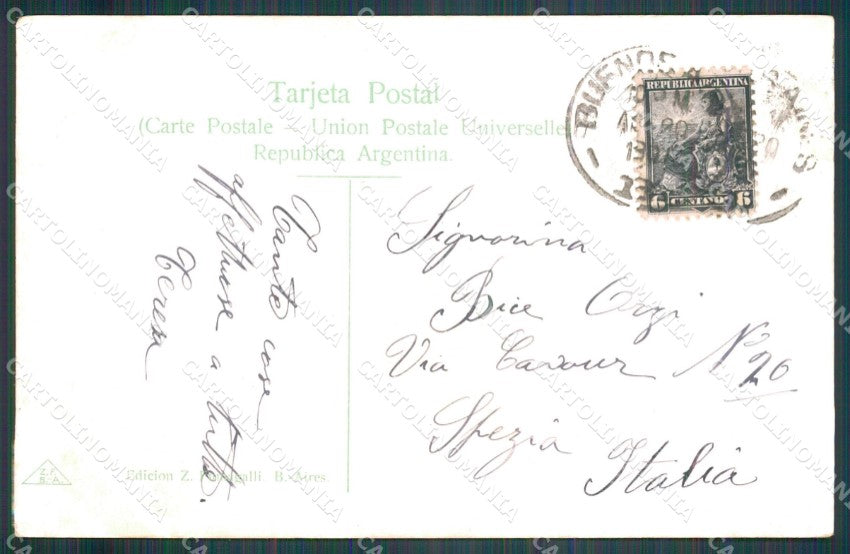 Tarjeta Postal
(Carte Postale – Union Postale Universelle)
Republica Argentina.
BUENOS AIRES
REPUBLICA ARGENTINA
6 CENTAVOS 6
Signorina
Bice
Via Cavour N° 20
Spezia
Italia
Tante cose
affettuose a tutti.
Teresa
Z.F.
B.A.
Edicion Z. Fumagalli. B.-Aires.
CARTOLINOMANIA